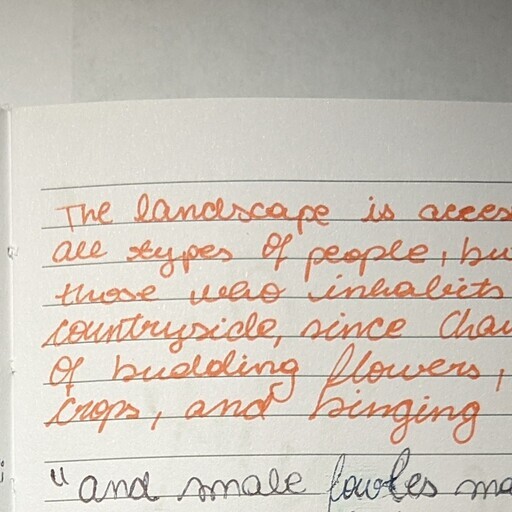 The landscape is acces
all types of people, bu
those who inhabits
countryside, since Chau
of budding flowers,
crops, and singing
"and smale fowles ma